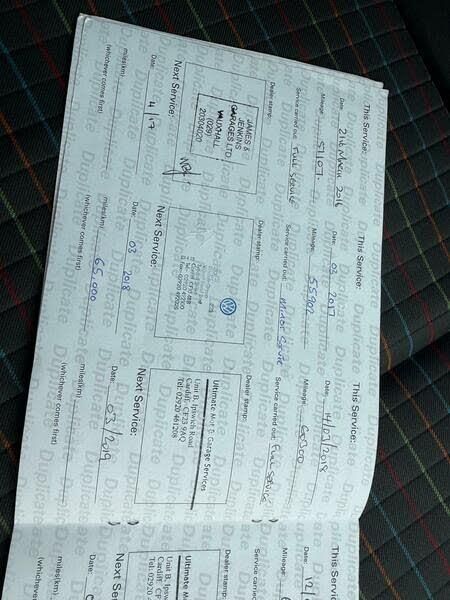 This Service:
Date: 21st March 2016
Mileage: 51107.
Service carried out: Full Service
Dealer stamp:
JAMES &
JENKINS
GARAGES LTD
VAUXHALL
(029)
20304020
Next Service:
Date: 4/17
miles(km)
(whichever comes first)
This Service:
Date: 03 2017
Mileage: 55902
Service carried out: Minor Service
Dealer stamp:
Next Service:
Date: 03 2018
miles(km) 65,000
(whichever comes first)
This Service:
Date: 14/03/2018
Mileage: 60300
Service carried out: Full Service
Dealer stamp:
Ultimate Mot & Garage Services
Unit B, Ipswich Road
Cardiff, CF23 9AQ
Tel: 02920 461208
Next Service:
Date: 03/2019
miles(km)
(whichever comes first)
This Serv
Date: 12/
Mileage:
Service carri
Dealer stamp:
Ultimate M
Unit B, Ips
Cardiff, CF
Tel: 02920
Next S
Date:
miles(km)
(whichever